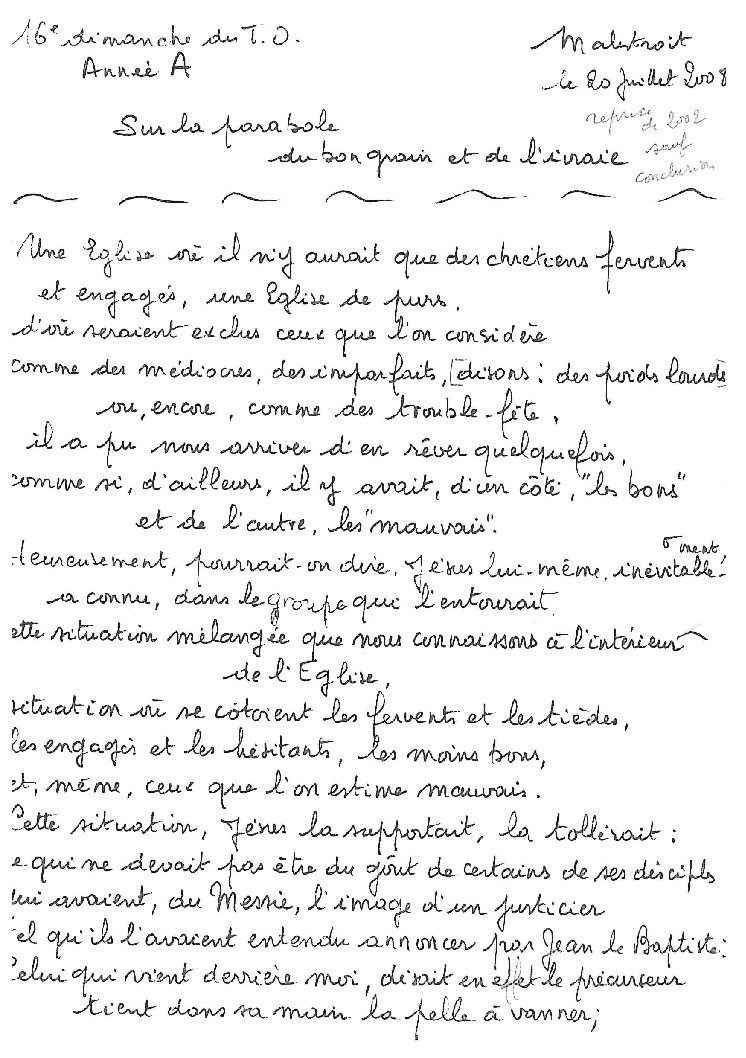 16e dimanche du T.O.
Année A
Malestroit
le 20 Juillet 2008
reprise
de 2002
sauf
conclusion
Sur la parabole
du bon grain et de l'ivraie
Une Eglise où il n'y aurait que des chrétiens fervents
et engagés, une Eglise de purs,
d'où seraient exclus ceux que l'on considère
comme des médiocres, des imparfaits, [disons: des poids lourds
ou, encore, comme des trouble-fête,
il a pu nous arriver d'en rêver quelquefois,
comme si, d'ailleurs, il y avait, d'un côté, "les bons"
et de l'autre, les "mauvais".
Heureusement, pourrait-on dire, Jésus lui-même, inévitable-ment,
a connu, dans le groupe qui l'entourait
ette situation mélangée que nous connaissons à l'intérieur
de l'Eglise,
situation où se côtoient les fervents et les tièdes,
les engagés et les hésitants, les moins bons,
et, même, ceux que l'on estime mauvais.
Cette situation, Jésus la supportait, la tollérait :
e qui ne devait pas être du goût de certains de ses disciples
qui avaient, du Messie, l'image d'un justicier
tel qu'ils l'avaient entendu annoncer par Jean le Baptiste:
Celui qui vient derrière moi, disait en effet le précurseur
tient dans sa main la pelle à vanner;